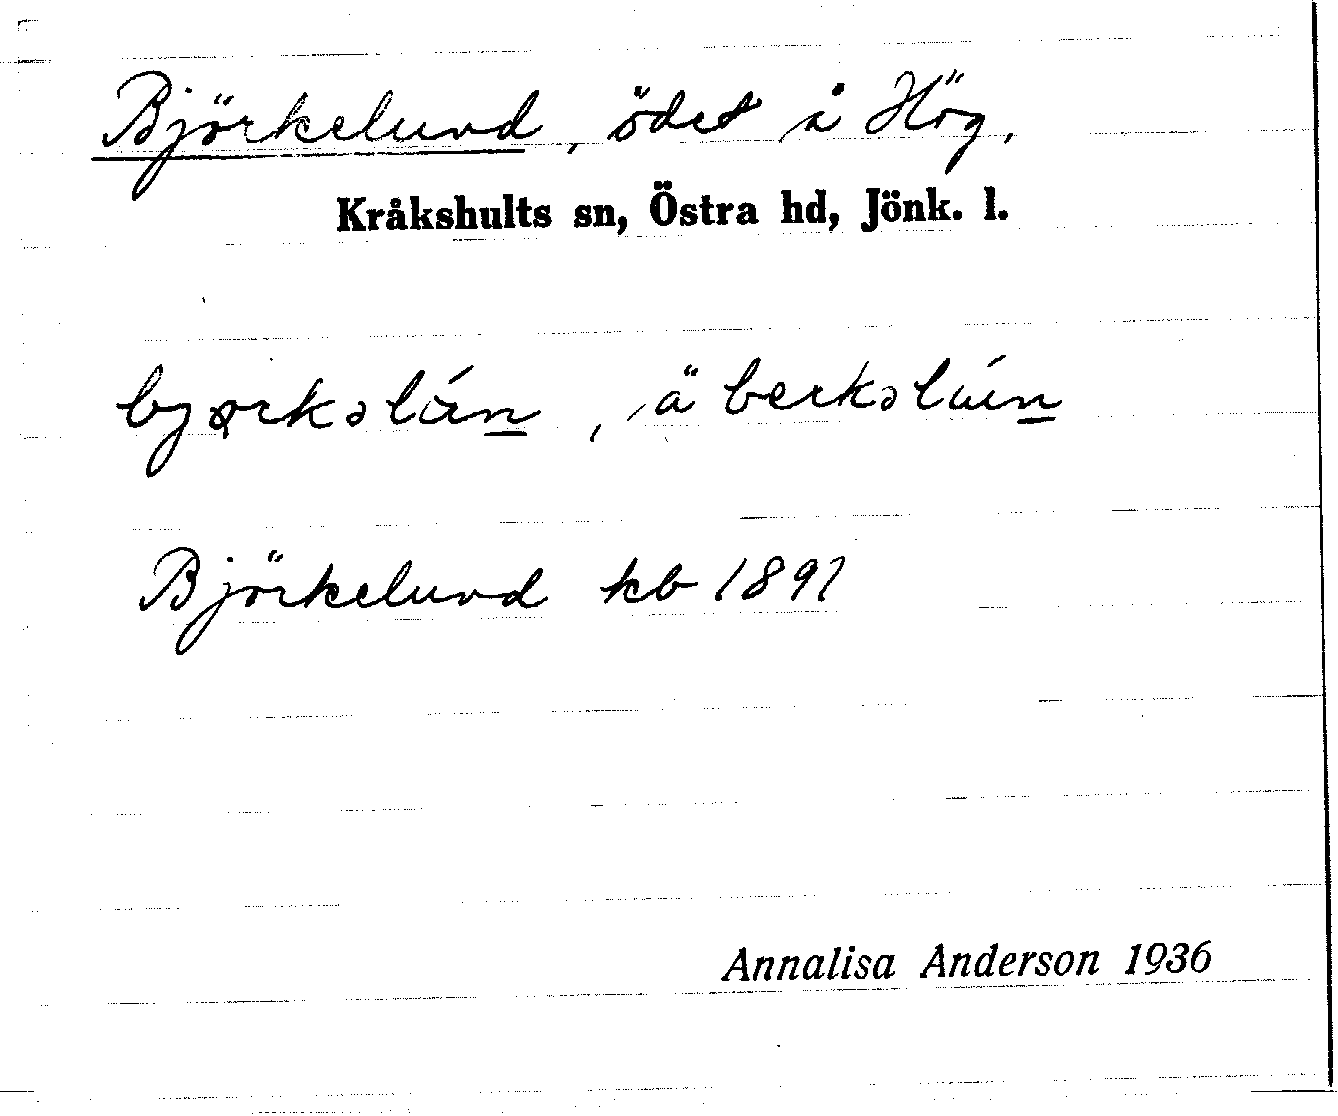 Björkelund, ödet å Hög,
Kråkshults sn, Östra hd, Jönk. l.
bjørkəlún, ä berkəlún
Björkelund kb 1891
Annalisa Anderson 1936